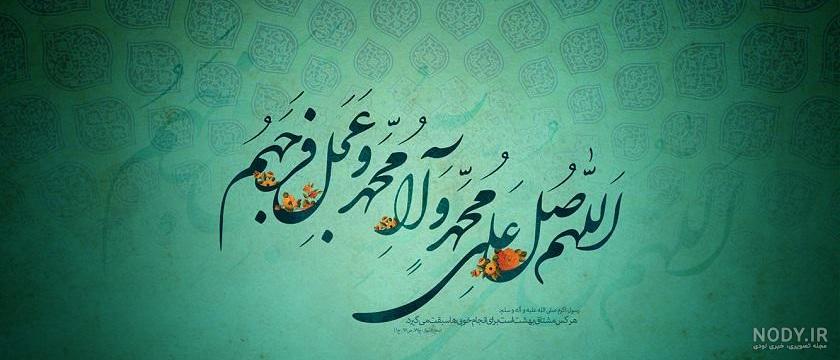 اَللّهُم صَلِّ عَلی مُحَمَّد وَ آلِ مُحَمَّد وَ عَجِّل فَرَجَهُم
رسول اکرم صلی الله علیه و آله و سلم:
هر کس مشتاق بهشت است برای انجام خوبی‌ها سبقت می‌گیرد.
NODY.IR
مجله تصویری، خبری نودی